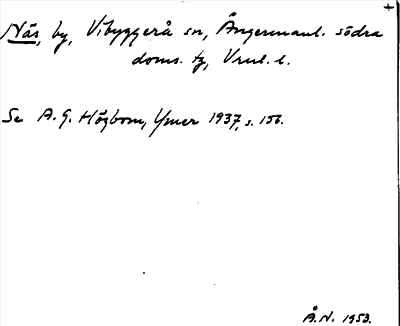 +
Näs, by, Vibyggerå sn, Ångermanl. södra
doms. tg, Vnul. l.
Se A. G. Högbom, Ymer 1937, s. 156.
Å.N. 1953.